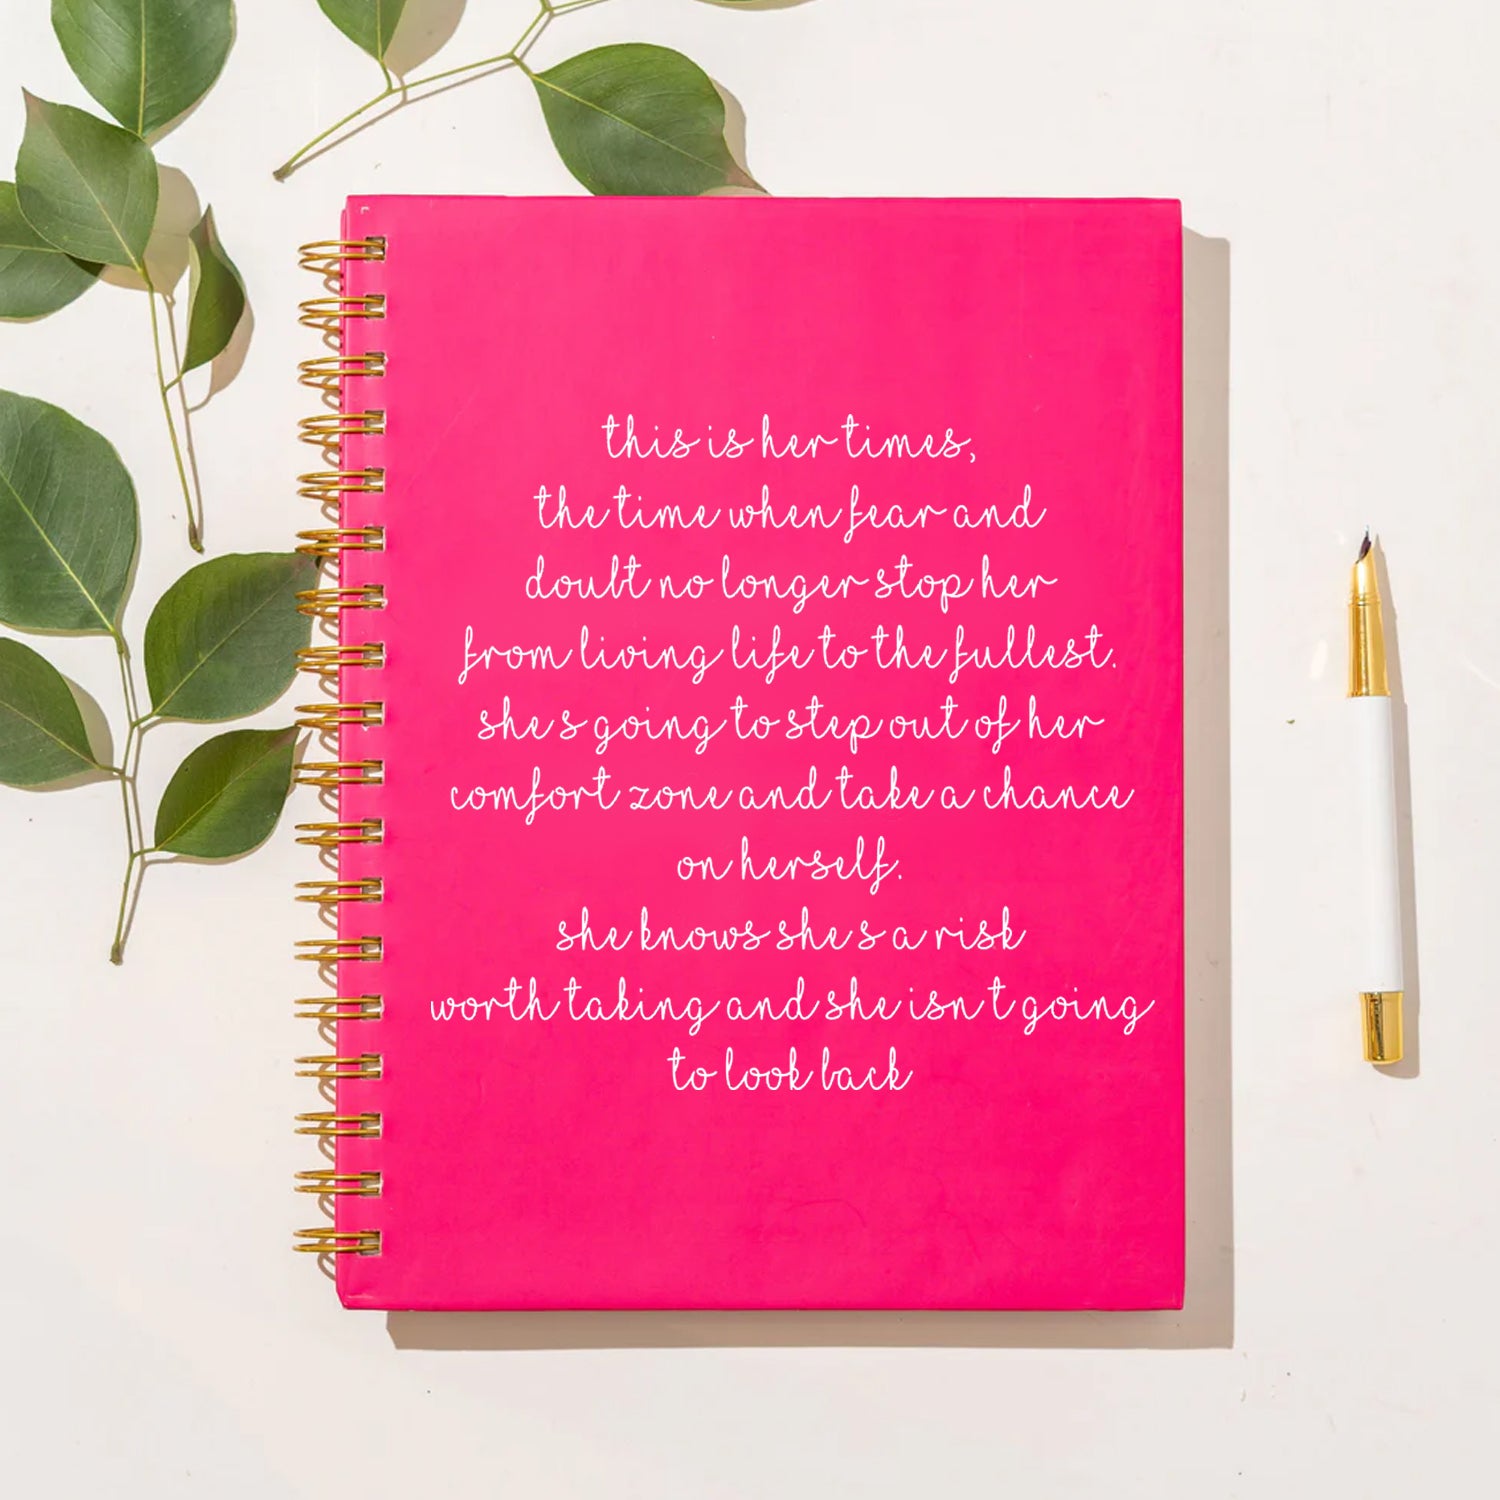 this is her times,
the time when fear and
doubt no longer stop her
from living life to the fullest.
she's going to step out of her
comfort zone and take a chance
on herself.
she knows she's a risk
worth taking and she isn't going
to look back